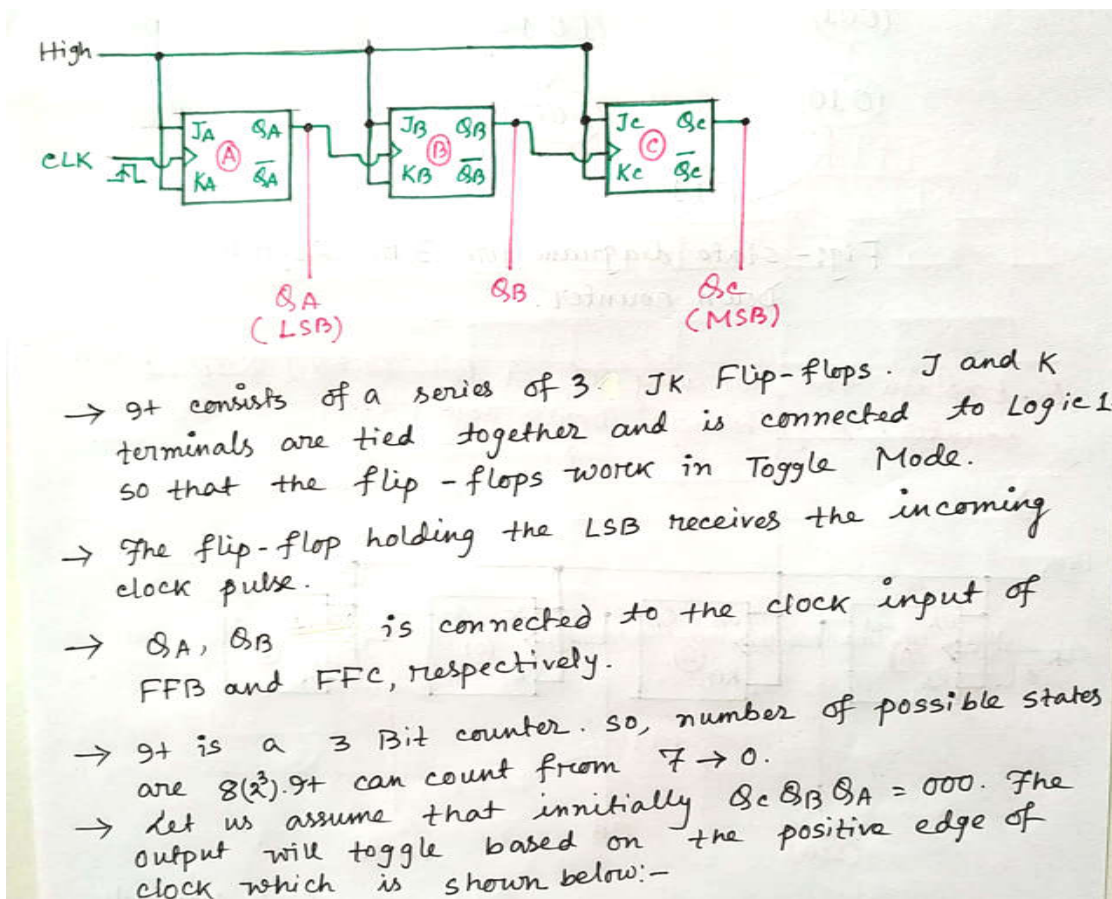 High
JA QA
CLK A
KA Q̅A̅
JB QB
B
KB Q̅B̅
Jc Qc
C
Kc Q̅c̅
QA
(LSB)
QB
Qc
(MSB)
→ It consists of a series of 3. JK Flip-flops. J and K
terminals are tied together and is connected to Logic 1.
so that the flip-flops work in Toggle Mode.
→ The flip-flop holding the LSB receives the incoming
clock pulse.
→ QA, QB is connected to the clock input of
FFB and FFC, respectively.
→ It is a 3 Bit counter. so, number of possible states
are 8(2³). It can count from 7 → 0.
→ Let us assume that innitially Qc QB QA = 000. The
output will toggle based on the positive edge of
clock which is shown below:-